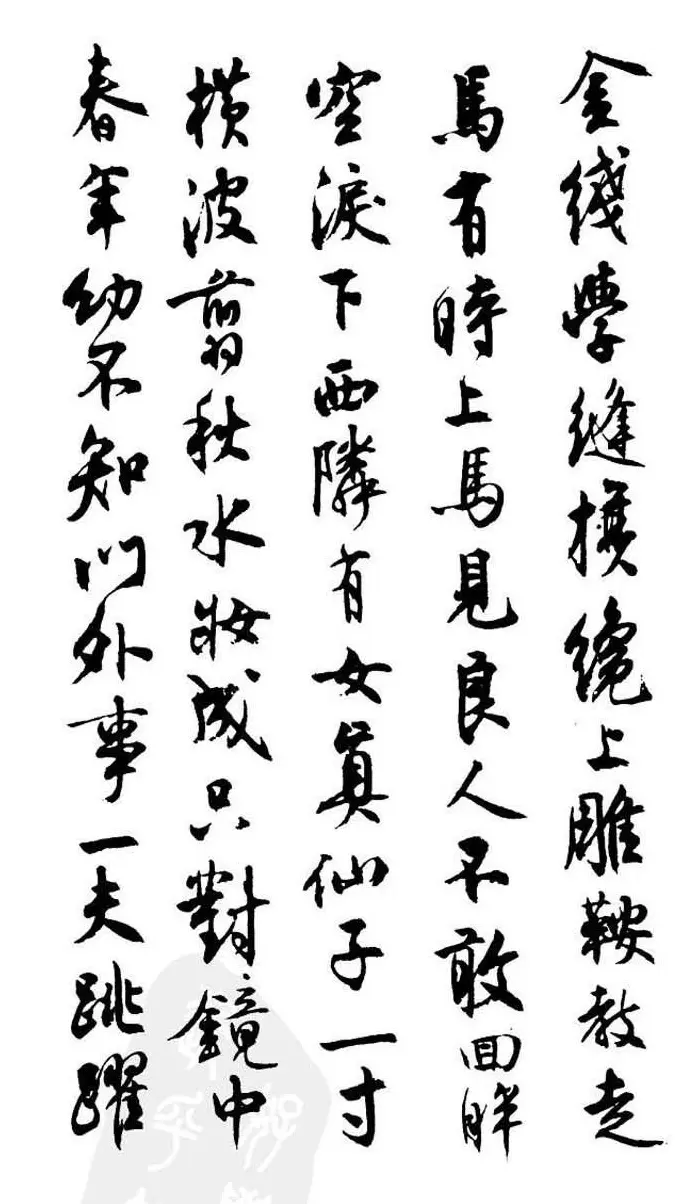 金綫學縫旗纔上雕鞍教走
馬有時上馬見良人不敢回眸
空淚下西隣有女真仙子一寸
横波翦秋水妝成只對鏡中
春年幼不知門外事一夫跳躍